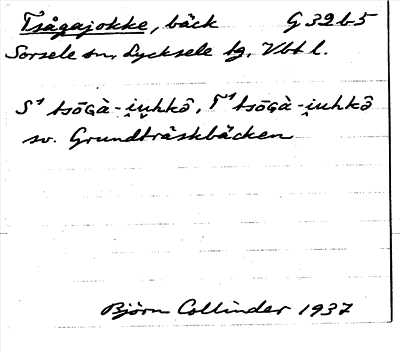 Tsågajokke, bäck G 32 b 5
Sorsele sn, Lycksele tg, Vbt l.
S¹ tsōGà-i̯uhkŏ̂, T¹ tsōGà-i̯uhkŏ̂
sv. Grundträskbäcken
Björn Collinder 1937